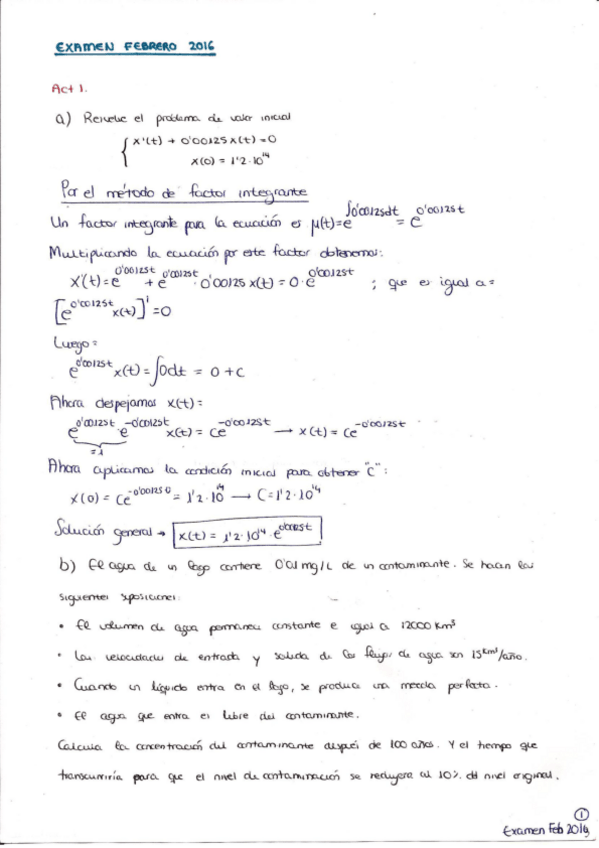 EXAMEN FEBRERO 2016
Act 1.
a) Resuelve el problema de valor inicial
{ x'(t) + 0'00125x(t) = 0
x(0) = 1'2·10^14
Por el método de factor integrante
Un factor integrante para la ecuación es μ(t)=e^∫0'00125dt = e^0'00125t
Multiplicando la ecuación por este factor obtenemos:
x'(t)=e^0'00125t + e^0'00125t · 0'00125 x(t) = 0·e^0'00125t ; que es igual a=
[e^0'00125t x(t)]' = 0
Luego=
e^0'00125t x(t) = ∫0dt = 0 + C
Ahora despejamos x(t)=
e^0'00125t e^-0'00125t x(t) = Ce^-0'00125t → x(t) = Ce^-0'00125t
=1
Ahora aplicamos la condición inicial para obtener "C":
x(0) = Ce^-0'00125·0 = 1'2·10^14 → C=1'2·10^14
Solución general → x(t) = 1'2·10^14·e^0'00125t
b) El agua de un lago contiene 0'01 mg/L de un contaminante. Se hacen las
siguientes suposiciones:
• El volumen de agua permanece constante e igual a 12000 Km³
• Las velocidades de entrada y salida de los flujos de agua son 15 Km³/año.
• Cuando un líquido entra en el lago, se produce una mezcla perfecta.
• El agua que entra es libre del contaminante.
Calcula la concentración del contaminante después de 100 años. Y el tiempo que
transcurriría para que el nivel de contaminación se redujera al 10% del nivel original.
1
Examen Feb 2016